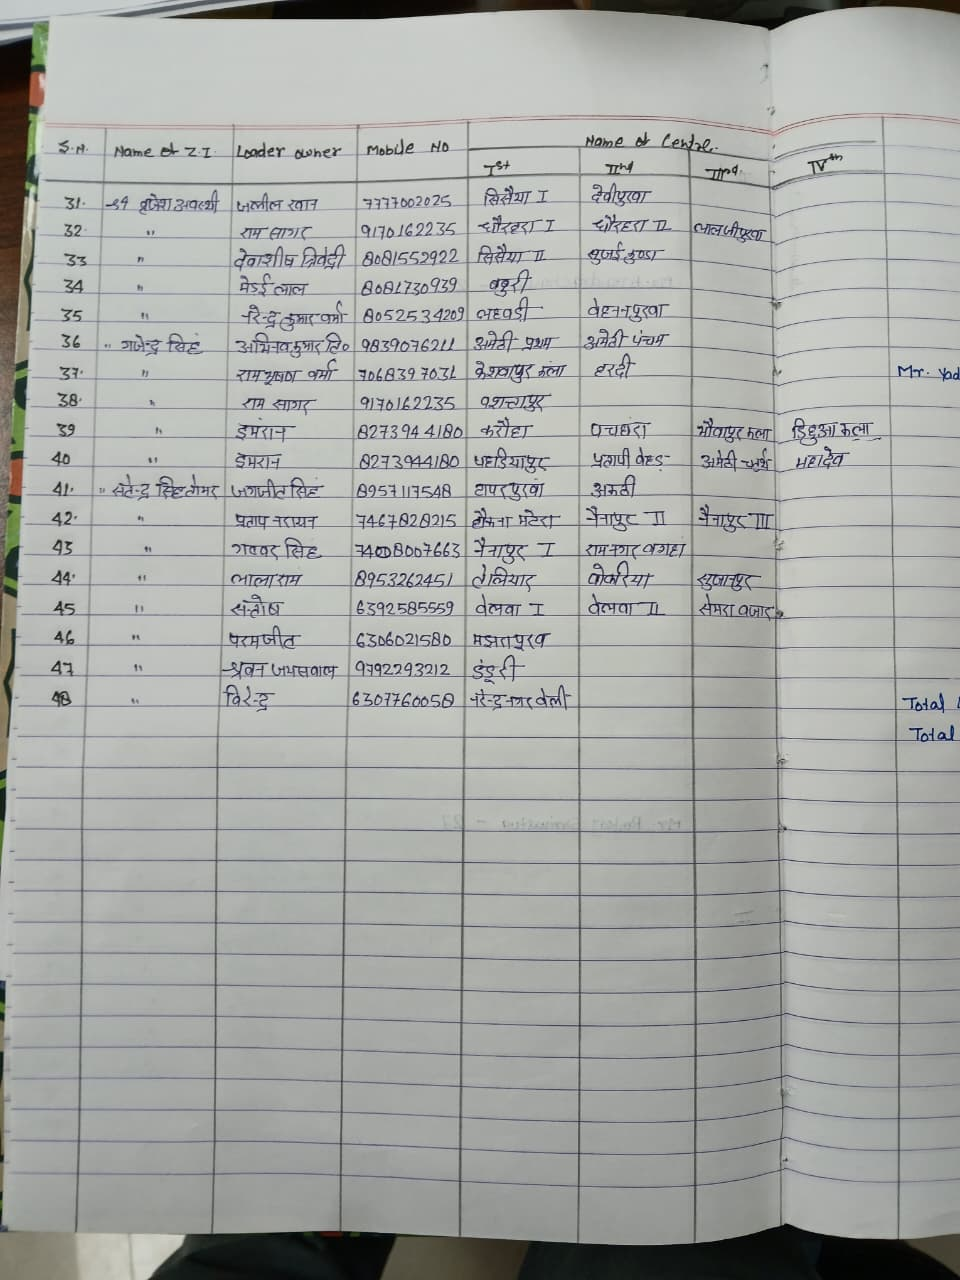 S.N. Name of Z.I. Loader owner Mobile No Name of Centre.
Ist IInd IIIrd. IVth
31. श्री बृजेश अवस्थी जलील खान 7777002025 सिसैया I देवीपुरवा
32. " राम सागर 9170162235 धौरहरा I धौरहरा II लालजीपुरवा
33 " देवाशीष त्रिवेदी 8081552922 सिसैया II सुजई कुण्डा
34 " मेडई लाल 8081730939 बबुरी
35 " नरेन्द्र कुमार वर्मा 8052534209 लहबड़ी वेहननपुरवा
36 " गजेन्द्र सिंह अभिनव कुमार सिं० 9839076211 अमेठी प्रथम अमेठी पंचम
37. " राम भूषण वर्मा 7068397031 केशवापुर कला हरदी Mr. Yad
38. " राम सागर 9170162235
39 " इमरान 8273944180 करौहा पचछरा भौवापुर कला डिहुआ कला
40 " इमरान 8273944180 पहडियापुर प्रतापी वेहड़ अमेठी चतुर्थ महादेव
41. " सतेन्द्र सिंह तोमर जगजीत सिंह 8957117548 छापरपुरवा अमेठी
42. " प्रताप नरायन 7467828215 मटेरा नैनापुर II नैनापुर III
43 " गब्बर सिंह 74008007663 नैनापुर I रामनगर बगहा
44. " लालाराम 8953262451 तेलियार पोकरिया सुजानपुर
45 " संतोष 6392585559 वेलवा I वेलवा II सेमरा बजार
46 " परमजीत 6306021580 मझतपुरव
47 " श्रवन जयसवाल 9792293212 डंडूरी
48 " विरेन्द्र 6307760058 नरेन्द्रनगर वेली Total
Total